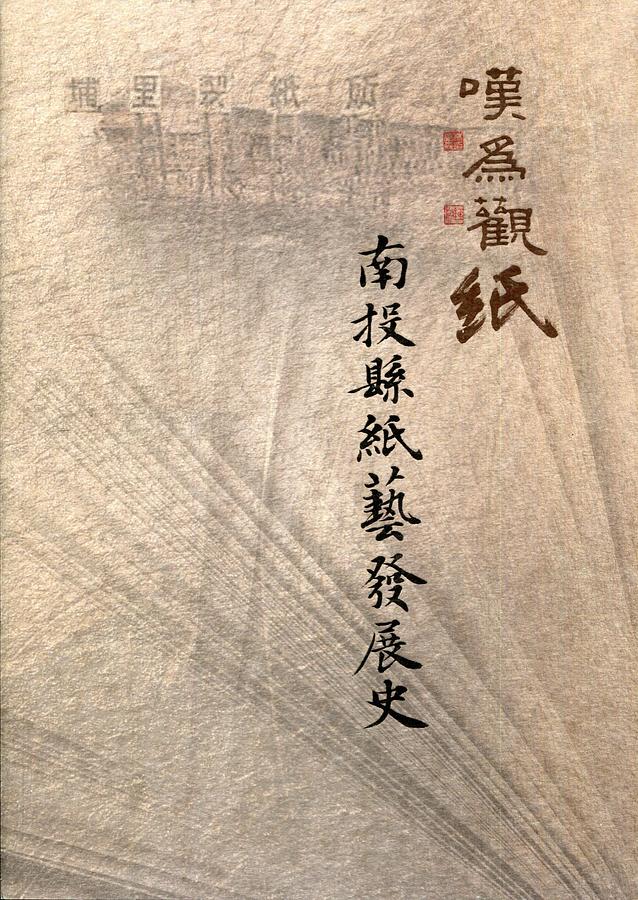 嘆為觀紙
南投縣紙藝發展史
埔里製紙所